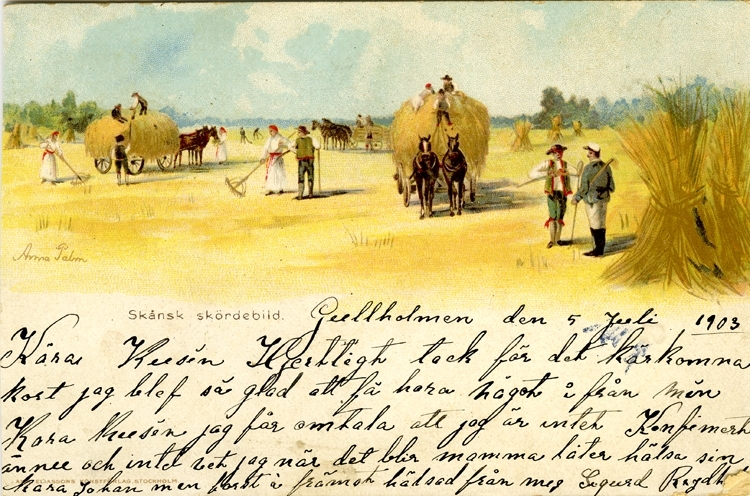 Anna Palm
Skånsk skördebild.
Gullholmen den 5 Juli 1903
Kära Kusén Hjertligh tack för det kärkomna
kort jag blef så glad att få höra något i från mén
Kära Kusén jag får omtala att jag är inte Konfimerth
ännee och inte vet jag när det blir mamma låter hälsa sin
Kära Johan men först i främst hälsad från mig Sigurd
KONSTFÖRLAG STOCKHOLM